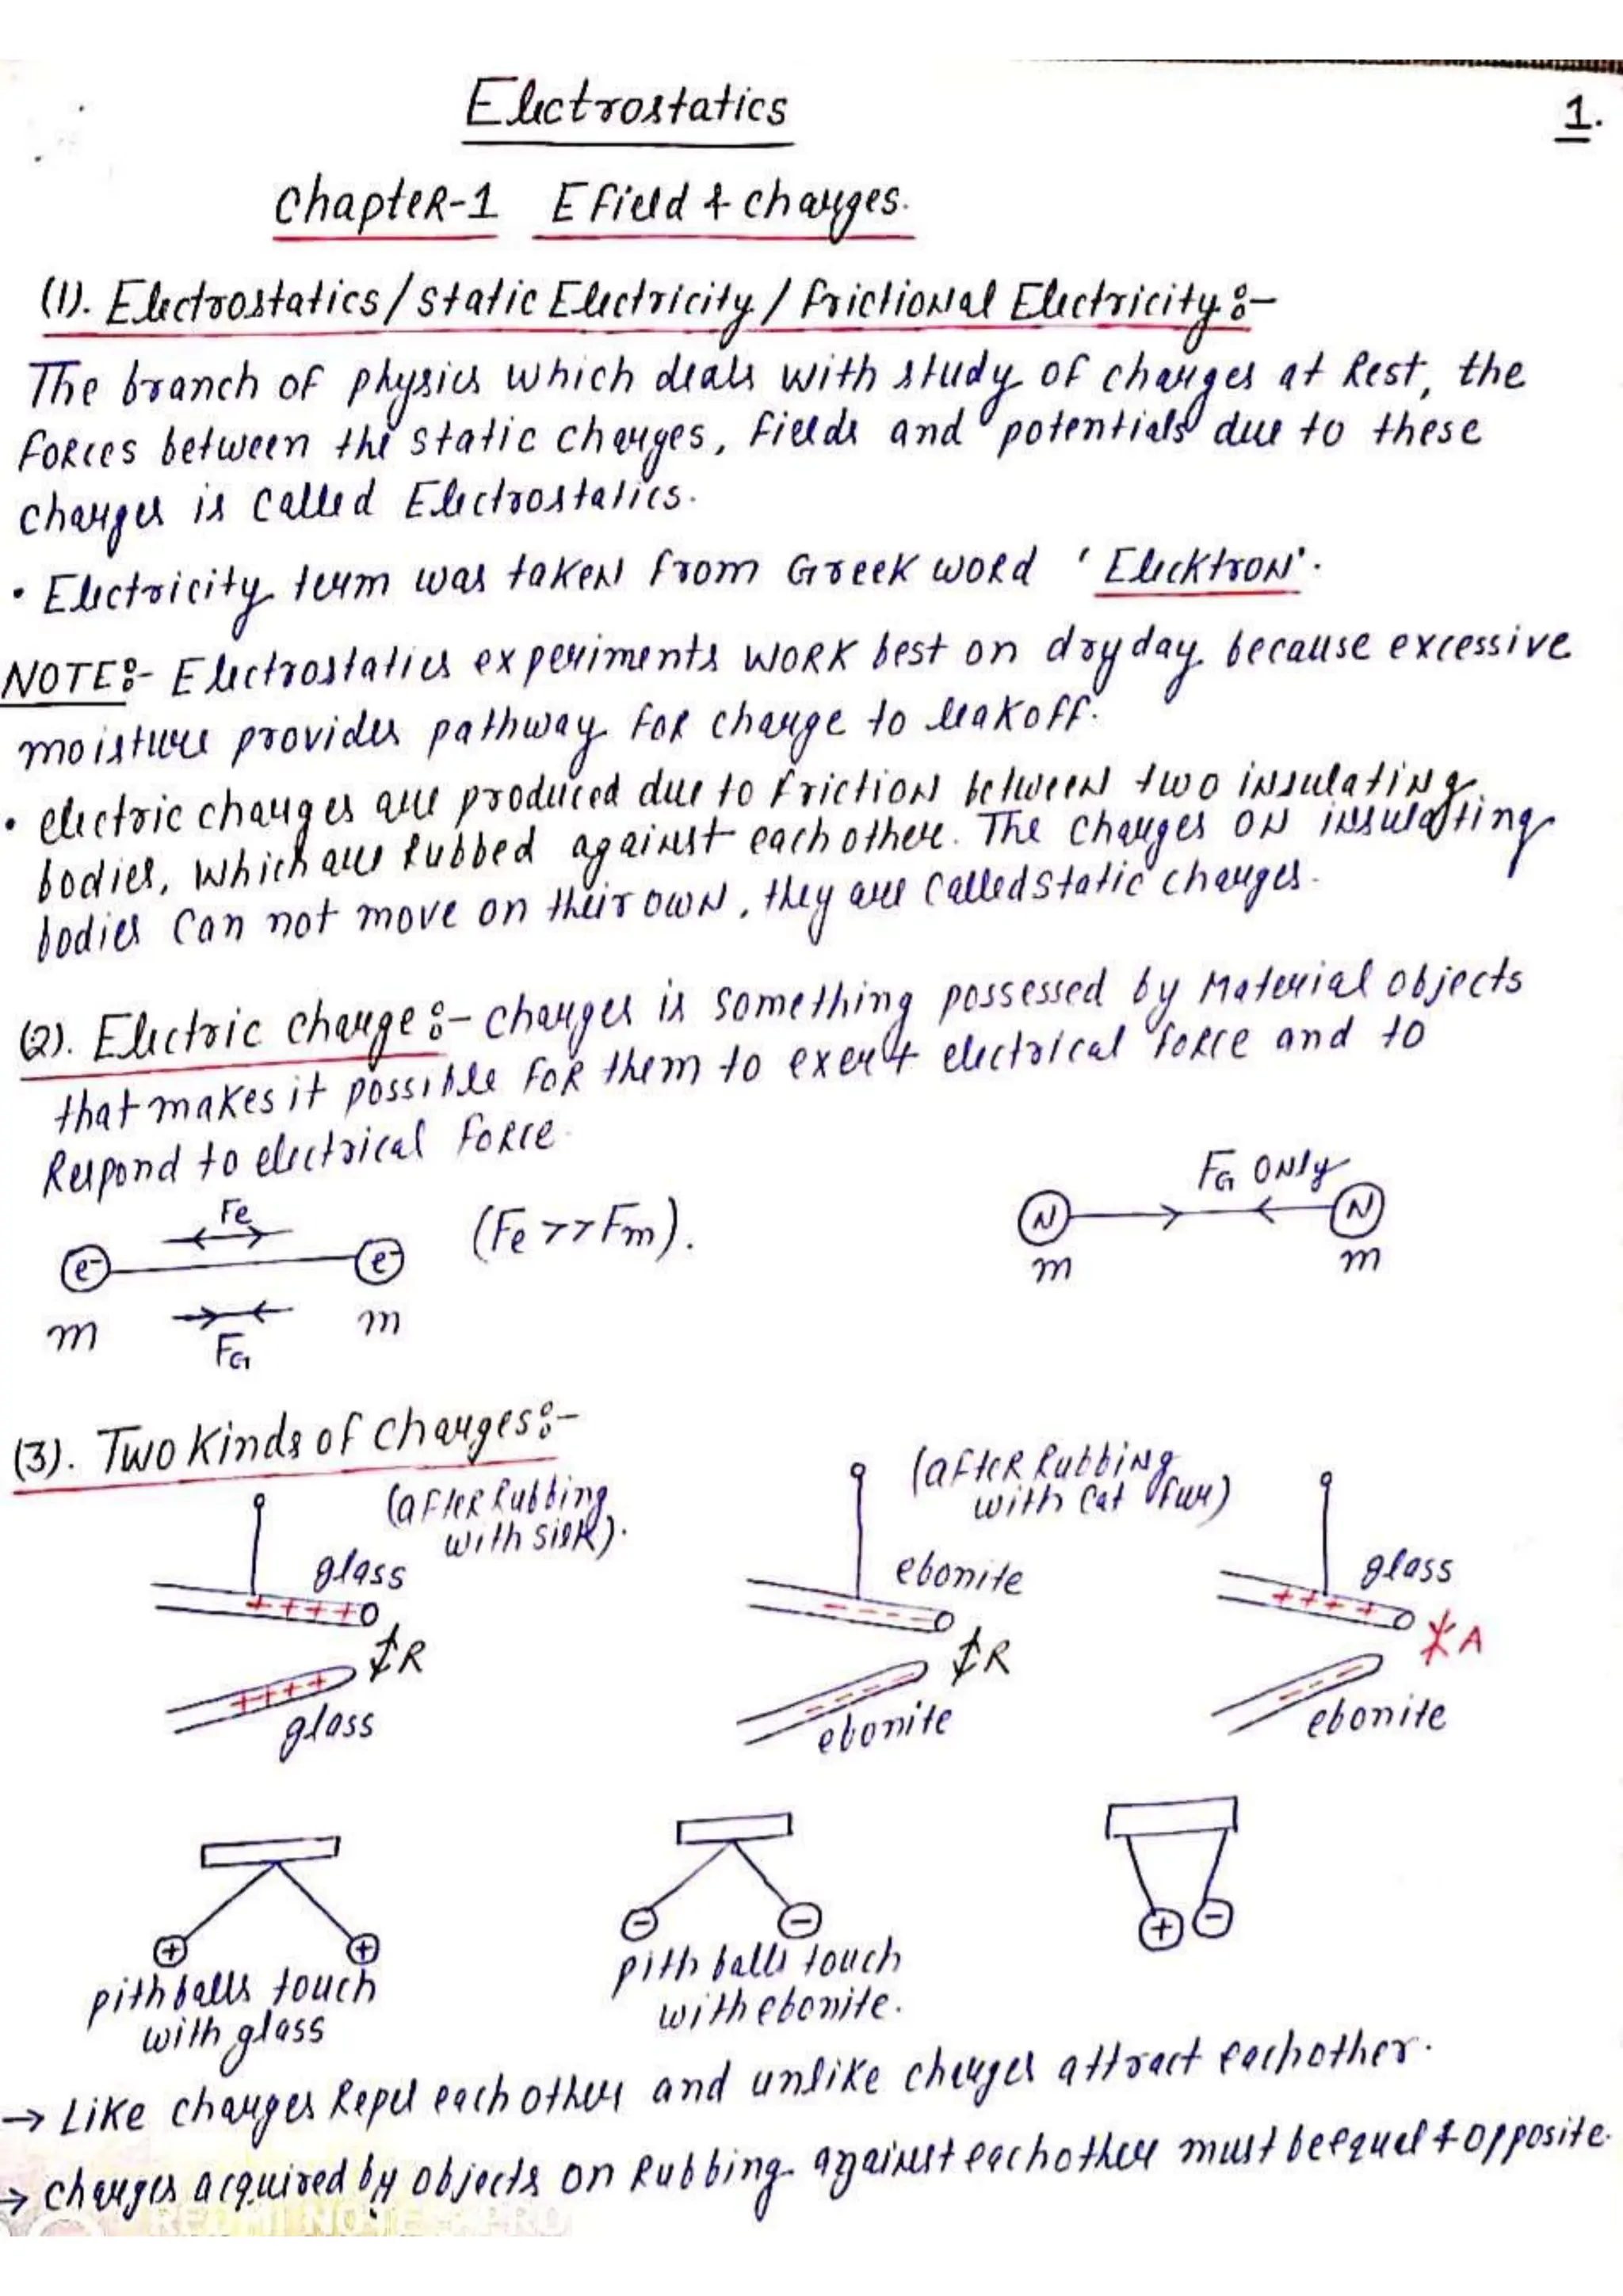 Electrostatics
1.
Chapter-1 E field & charges.
(1). Electrostatics / static Electricity / frictional Electricity :-
The branch of physics which deals with study of charges at Rest, the
forces between the static charges, fields and potentials due to these
charges is called Electrostatics.
• Electricity term was taken from Greek word ' Elecktron'.
NOTE:- Electrostatics experiments work best on dry day because excessive
moisture provides pathway for charge to leakoff.
• electric charges are produced due to friction between two insulating
bodies, which are Rubbed against each other. The charges on insulating
bodies can not move on their own, they are called static charges.
(2). Electric charge :- charges is something possessed by Material objects
that makes it possible for them to exert electrical force and to
Respond to electrical force
Fe
(Fe >> Fm).
FG only
e- e-
N N
m m
m m
FG
(3). Two Kinds of Charges :-
(after Rubbing
with silk).
(after Rubbing
with cat fur)
glass
ebonite
glass
+ + + +
- - - -
+ + + +
R
R
A
+ + + +
- - - -
- - - -
glass
ebonite
ebonite
+ +
- -
+ -
pith balls touch
with glass
pith balls touch
with ebonite.
→ Like charges Repel each other and unlike charges attract eachother.
→ charges acquired by objects on Rubbing against eachother must be equal & opposite.
REDMI NOTE PRO